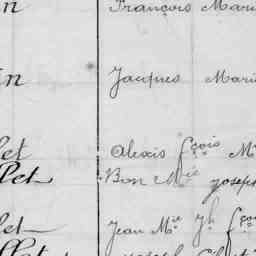 n François Mari
in Jacques Mari
let Alexis fçois M
llet Bon Mie joseph
let Jean Mie Jh fçois
llet joseph